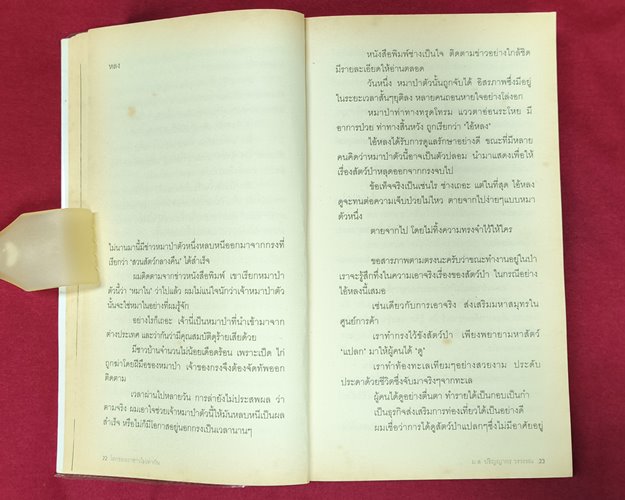 หลง
ไม่นานมานี้มีข่าวหมาป่าตัวหนึ่งหลบหนีออกมาจากกรงที่
เรียกว่า "สวนสัตว์กลางคืน" ได้สำเร็จ
ผมติดตามจากข่าวหนังสือพิมพ์ เขาเรียกหมาป่า
ตัวนี้ว่า "หมาใน" ว่าไปแล้ว ผมไม่แน่ใจนักว่าเจ้าหมาป่าตัว
นั้นจะใช่หมาในอย่างที่ผมรู้จัก
อย่างไรก็เถอะ เจ้านี่เป็นหมาป่าที่นำเข้ามาจาก
ต่างประเทศ และว่ากันว่ามีคุณสมบัติดุร้ายเสียด้วย
มีชาวบ้านจำนวนไม่น้อยเดือดร้อน เพราะเป็ด ไก่
ถูกฆ่าโดยฝีมือของหมาป่า เจ้าของกรงจึงต้องจัดทัพออก
ติดตาม
เวลาผ่านไปหลายวัน การล่ายังไม่ประสพผล ว่า
ตามจริง ผมเอาใจช่วยเจ้าหมาป่าตัวนี้ให้มันหลบหนีเป็นผล
สำเร็จ หรือไม่ก็มีโอกาสอยู่นอกกรงเป็นเวลานานๆ
22
หนังสือพิมพ์ช่างเป็นใจ ติดตามข่าวอย่างใกล้ชิด
มีรายละเอียดให้อ่านตลอด
วันหนึ่ง หมาป่าตัวนั้นถูกจับได้ อิสรภาพซึ่งมีอยู่
ในระยะเวลาสั้นๆยุติลง หลายคนถอนหายใจอย่างโล่งอก
หมาป่าท่าทางทรุดโทรม แววตาอ่อนระโหย มี
อาการป่วย ท่าทางสิ้นหวัง ถูกเรียกว่า "ไอ้หลง"
ไอ้หลงได้รับการดูแลรักษาอย่างดี ขณะที่มีหลาย
คนคิดว่าหมาป่าตัวนี้อาจเป็นตัวปลอม นำมาแสดงเพื่อให้
เรื่องสัตว์ป่าหลุดออกจากกรงจบไป
ข้อเท็จจริงเป็นเช่นไร ช่างเถอะ แต่ในที่สุด ไอ้หลง
ดูจะทนต่อความเจ็บป่วยไม่ไหว ตายจากไปง่ายๆแบบหมา
ตัวหนึ่ง
ตายจากไป โดยไม่ทิ้งความทรงจำไว้ให้ใคร
ขอสารภาพตามตรงนะครับว่าขณะทำงานอยู่ในป่า
เราจะรู้สึกทึ่งในความเอาจริงเรื่องของสัตว์ป่า ในกรณีอย่าง
ไอ้หลงนี้เสมอ
เช่นเดียวกับการเอาจริง ส่งเสริมมหาสมุทรใน
ศูนย์การค้า
เราทำกรงไว้ขังสัตว์ป่า เพียงพยายามหาสัตว์
"แปลก" มาให้ผู้คนได้ "ดู"
เราทำท้องทะเลเทียมๆอย่างสวยงาม ประดับ
ประดาด้วยชีวิตซึ่งจับมาจริงๆจากทะเล
ผู้คนได้ดูอย่างตื่นตา ทำรายได้เป็นกอบเป็นกำ
เป็นธุรกิจส่งเสริมการท่องเที่ยวได้เป็นอย่างดี
ผมเชื่อว่าการได้ดูสัตว์ป่าแปลกๆซึ่งไม่มีอาศัยอยู่
ม.ล. ปริญญากร วรวรรณ 23